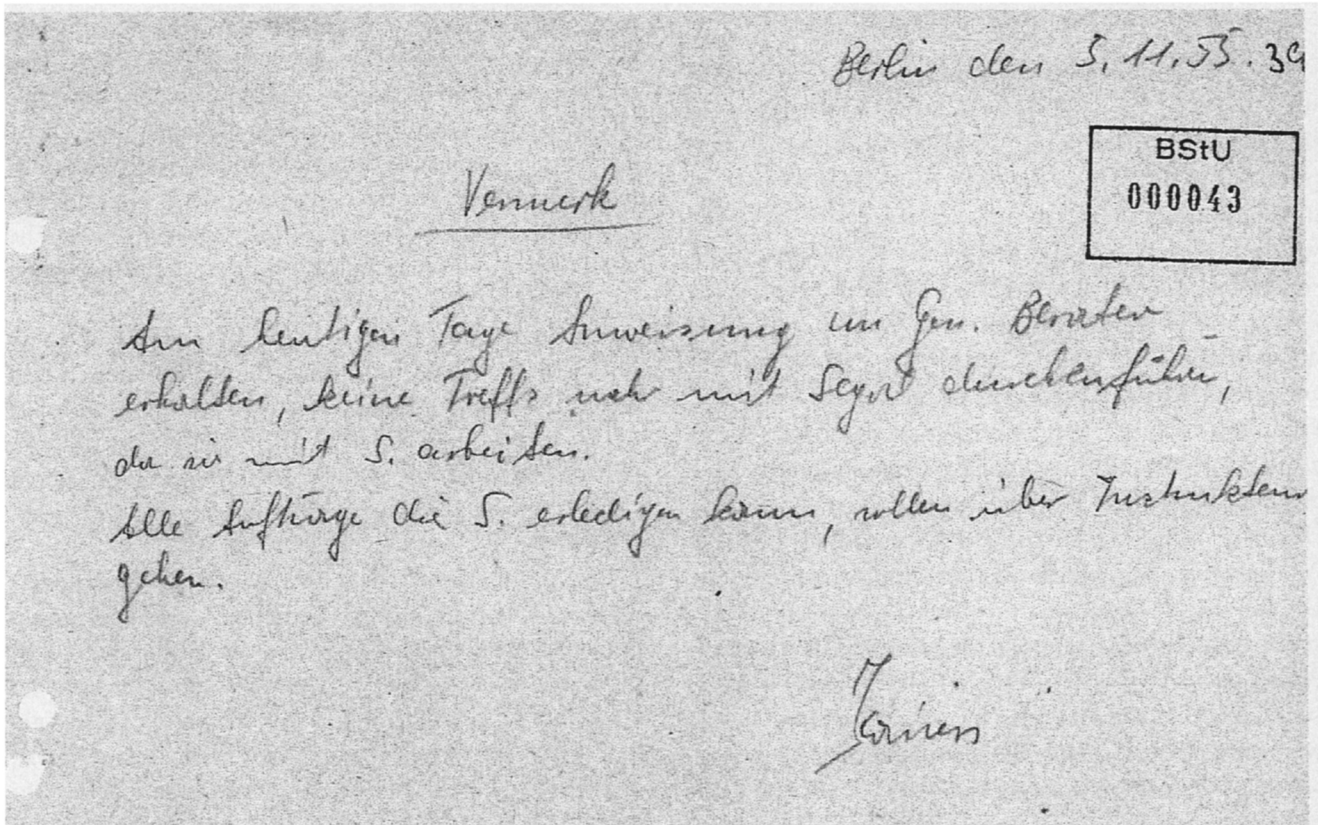 Berlin den 5.11.55. 39
BStU
000043
Vermerk
Am heutigen Tage Anweisung von Gen. Berater
erhalten, keine Treffs mehr mit durchzuführen,
da sie mit S. arbeiten.
Alle Aufträge die S. erledigen kann, sollen über Instrukteur
gehen.